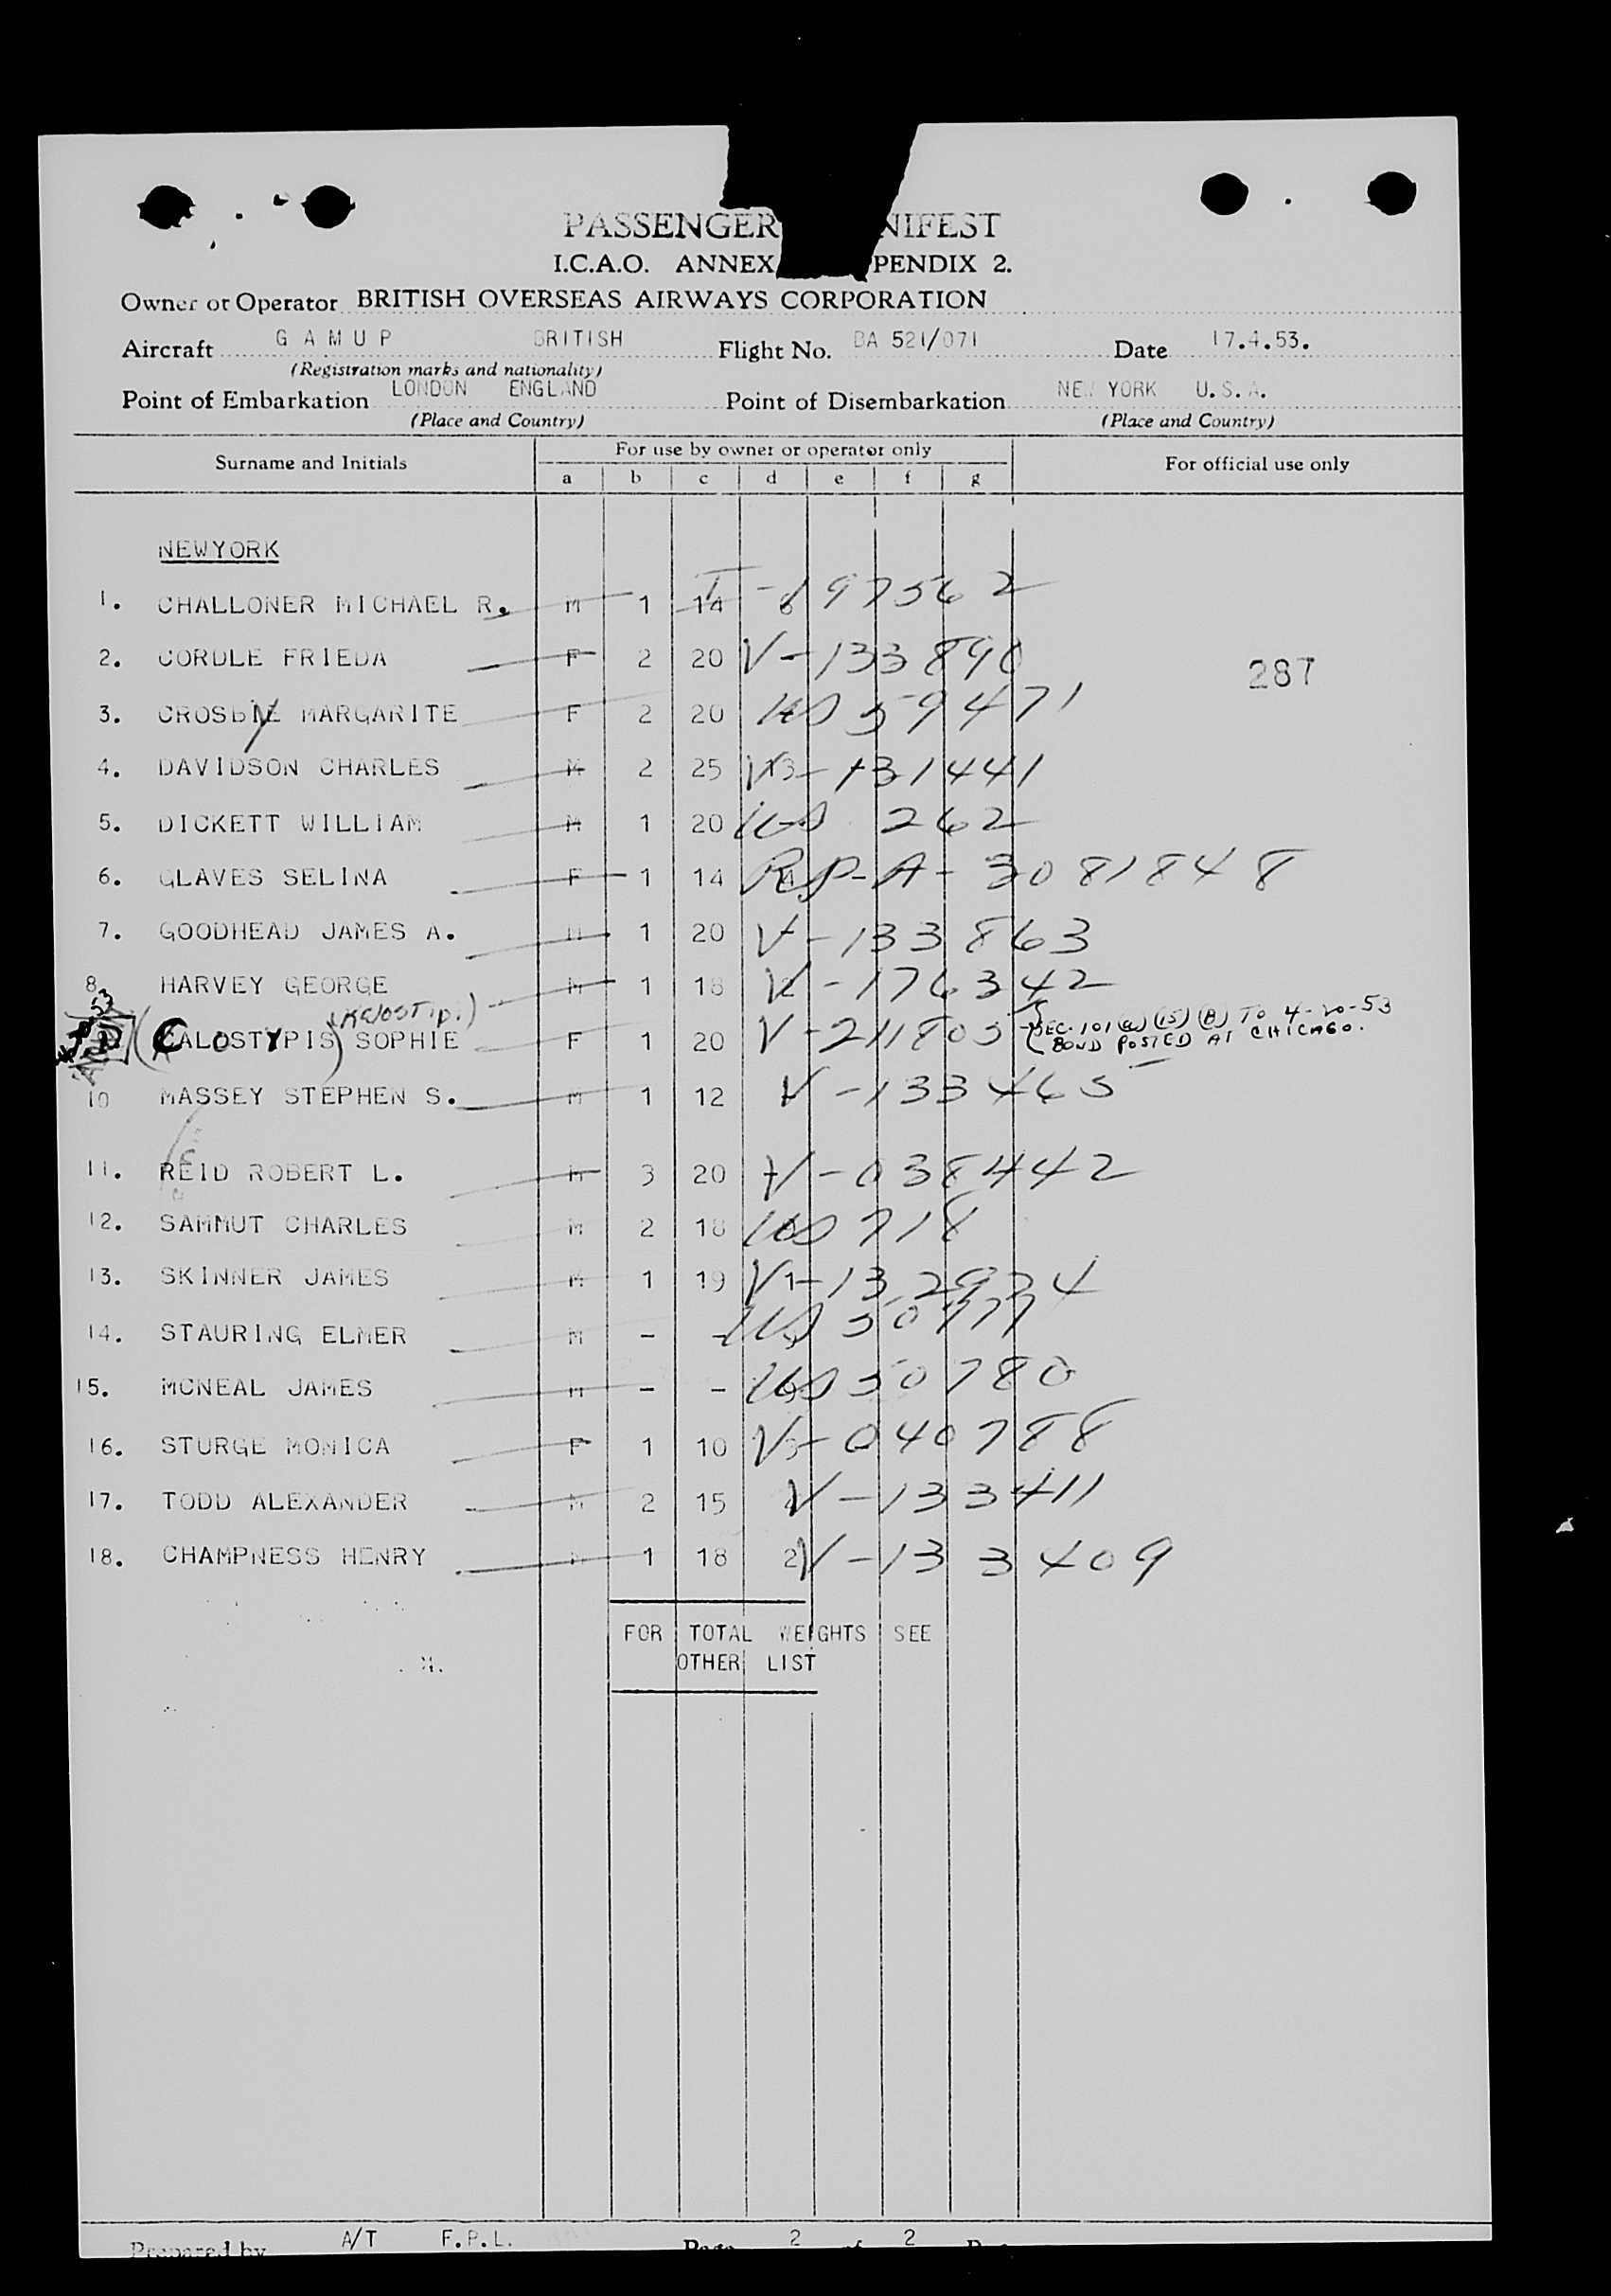 PASSENGER NIFEST
I.C.A.O. ANNEX PENDIX 2.
Owner or Operator BRITISH OVERSEAS AIRWAYS CORPORATION
Aircraft G A M U P BRITISH Flight No. BA 521/071 Date 17.4.53.
(Registration marks and nationality)
Point of Embarkation LONDON ENGLAND Point of Disembarkation NEW YORK U.S.A.
(Place and Country) (Place and Country)
Surname and Initials For use by owner or operator only For official use only
a b c d e f g
NEWYORK
1. CHALLONER MICHAEL R. M 1 14 6 T-197562
2. CORDLE FRIEDA F 2 20 V-133890
287
3. CROSBIE MARGARITE F 2 20 US 59471
4. DAVIDSON CHARLES M 2 25 13 V-131441
5. DICKETT WILLIAM M 1 20 US 262
6. GLAVES SELINA F 1 14 4 RP-A-3081848
7. GOODHEAD JAMES A. M 1 20 V-133863
8. HARVEY GEORGE M 1 18 V-176342
(KELOSTIPI)
(CALOSTYPIS) SOPHIE F 1 20 V-211805 SEC. 101(a)(15)(B) TO 4-20-53
BOND POSTED AT CHICAGO.
10 MASSEY STEPHEN S. M 1 12 V-133465
11. REID ROBERT L. M 3 20 V-038442
12. SAMMUT CHARLES M 2 18 US 718
13. SKINNER JAMES M 1 19 1 V-132924
14. STAURING ELMER M - - US 50777
15. MCNEAL JAMES M - - US 50780
16. STURGE MONICA F 1 10 V-040788
17. TODD ALEXANDER M 2 15 V-133411
18. CHAMPNESS HENRY M 1 18 2 V-133409
FOR TOTAL WEIGHTS SEE
OTHER LIST
Prepared by A/T F.P.L. Page 2 of 2